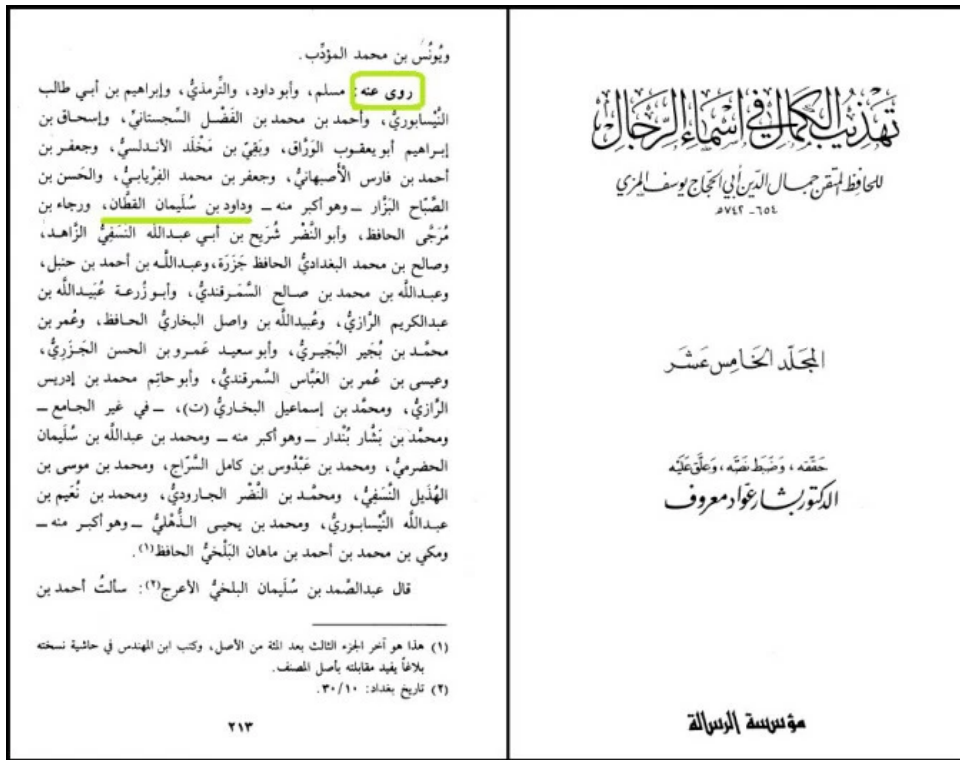 تهذيب الكمال في أسماء الرجال
للحافظ المتقن جمال الدين أبي الحجاج يوسف المزي
٦٥٤ - ٧٤٢ هـ
المجلد الخامس عشر
حققه، وضبط نصه، وعلق عليه
الدكتور بشار عواد معروف
مؤسسة الرسالة
ويُونُس بن محمد المؤدِّب.
روى عنه: مسلم، وأبو داود، والتِّرمذيُّ، وإبراهيم بن أبي طالب
النَّيْسابوريُّ، وأحمد بن محمد بن الفَضْل السِّجستانيُّ، وإسحاق بن
إبراهيم أبو يعقوب الوَرَّاق، وبَقِيّ بن مَخْلَد الأندلسيُّ، وجعفر بن
أحمد بن فارس الأصبهانيُّ، وجعفر بن محمد الفِرْيابيُّ، والحَسن بن
الصَّبّاح البَزَّار ــ وهو أكبر منه ــ وداود بن سُلَيمان القطَّان، ورجاء بن
مُرَجَّى الحافظ، وأبو النَّضْر شُرَيح بن أبي عبدالله النَّسَفِيُّ الزَّاهد،
وصالح بن محمد البغداديُّ الحافظ جَزَرَة، وعبدالله بن أحمد بن حنبل،
وعبدالله بن محمد بن صالح السَّمَرقنديُّ، وأبو زُرعة عُبَيدالله بن
عبدالكريم الرَّازيُّ، وعُبيدالله بن واصل البخاريُّ الحافظ، وعُمر بن
محمَّد بن بُجَير البُجَيريُّ، وأبو سعيد عَمرو بن الحسن الجَزَرِيُّ،
وعيسى بن عُمر بن العَبَّاس السَّمرقنديُّ، وأبو حاتِم محمد بن إدريس
الرَّازيُّ، ومحمَّد بن إسماعيل البخاريُّ (ت)، ــ في غير الجامع ــ
ومحمَّد بن بَشَّار بُنْدار ــ وهو أكبر منه ــ ومحمد بن عبدالله بن سُلَيمان
الحضرميُّ، ومحمد بن عَبْدُوس بن كامل السَّرَّاج، ومحمد بن موسى بن
الهُذَيل النَّسَفِيُّ، ومحمَّد بن النَّضْر الجاروديُّ، ومحمد بن نُعَيم بن
عبدالله النَّيْسابوريُّ، ومحمد بن يحيى الذُّهْليُّ ــ وهو أكبر منه ــ
ومكي بن محمد بن أحمد بن ماهان البَلْخيُّ الحافظ(١).
قال عبدالصَّمد بن سُلَيمان البلخيُّ الأعرج(٢): سألتُ أحمد بن
(١) هذا هو آخر الجزء الثالث بعد المئة من الأصل، وكتب ابن المهندس في حاشية نسخته
بلاغاً يفيد مقابلته بأصل المصنف.
(٢) تاريخ بغداد: ٣٠/١٠.
٢١٣